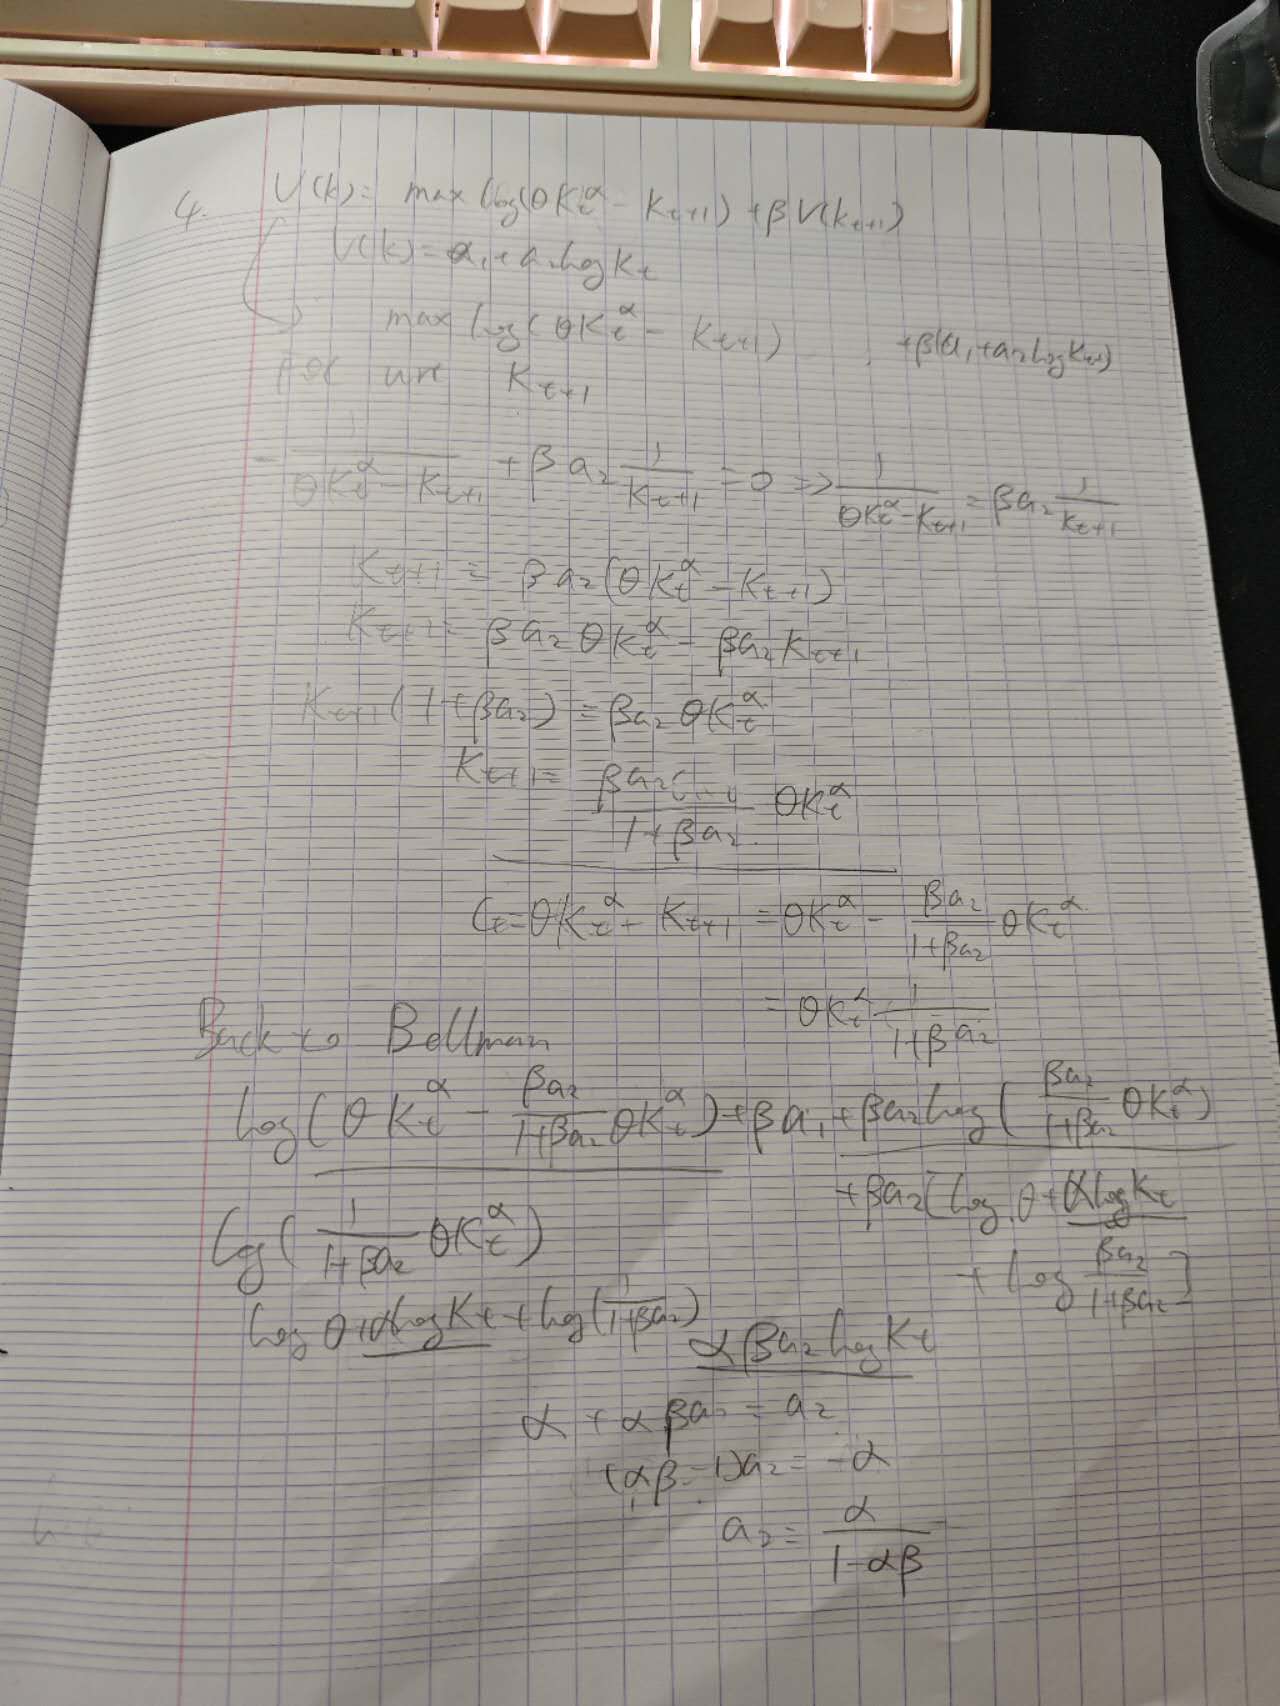 4. V(k) = max log(θK_t^α - K_{t+1}) + βV(k_{t+1})
V(k) = a_1 + a_2 log K_t
max log(θK_t^α - K_{t+1}) + β(a_1 + a_2 log K_{t+1})
FOC wrt K_{t+1}
- 1/(θK_t^α - K_{t+1}) + βa_2 1/K_{t+1} = 0 => 1/(θK_t^α - K_{t+1}) = βa_2 1/K_{t+1}
K_{t+1} = βa_2(θK_t^α - K_{t+1})
K_{t+1} = βa_2 θK_t^α - βa_2 K_{t+1}
K_{t+1}(1+βa_2) = βa_2 θK_t^α
K_{t+1} = βa_2/(1+βa_2) θK_t^α
C_t = θK_t^α + K_{t+1} = θK_t^α - βa_2/(1+βa_2) θK_t^α
= θK_t^α 1/(1+βa_2)
Back to Bellman
log(θK_t^α - βa_2/(1+βa_2) θK_t^α) + βa_1 + βa_2 log(βa_2/(1+βa_2) θK_t^α)
+ βa_2[log θ + α log K_t
+ log βa_2/(1+βa_2)]
log(1/(1+βa_2) θK_t^α)
log θ + α log K_t + log(1/(1+βa_2))
αβa_2 log K_t
α + αβa_2 = a_2
(αβ - 1)a_2 = -α
a_2 = α/(1-αβ)